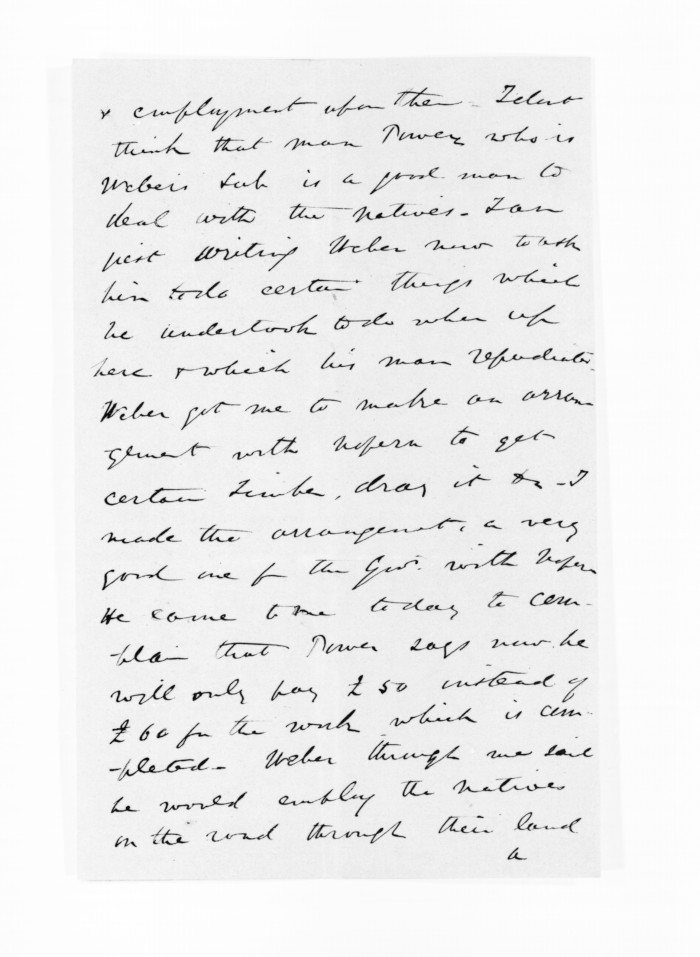 & employment upon them - I dont
think that man Power who is
Webers sub is a good man to
deal with the natives - I am
just writing Weber now to ask
him to do certain things which
he undertook to do when up
here & which his man repudiates.
Weber got me to make an arran-
gement with Hopera to get
certain timber, drag it &c - I
made the arrangemet, a very
good one for the Govt. with Hopera
He came to me today to com-
-plain that Power says now he
will only pay £50 instead of
£60 for the work which is com-
-pleted - Weber through me said
he would employ the natives
on the road through their land
a